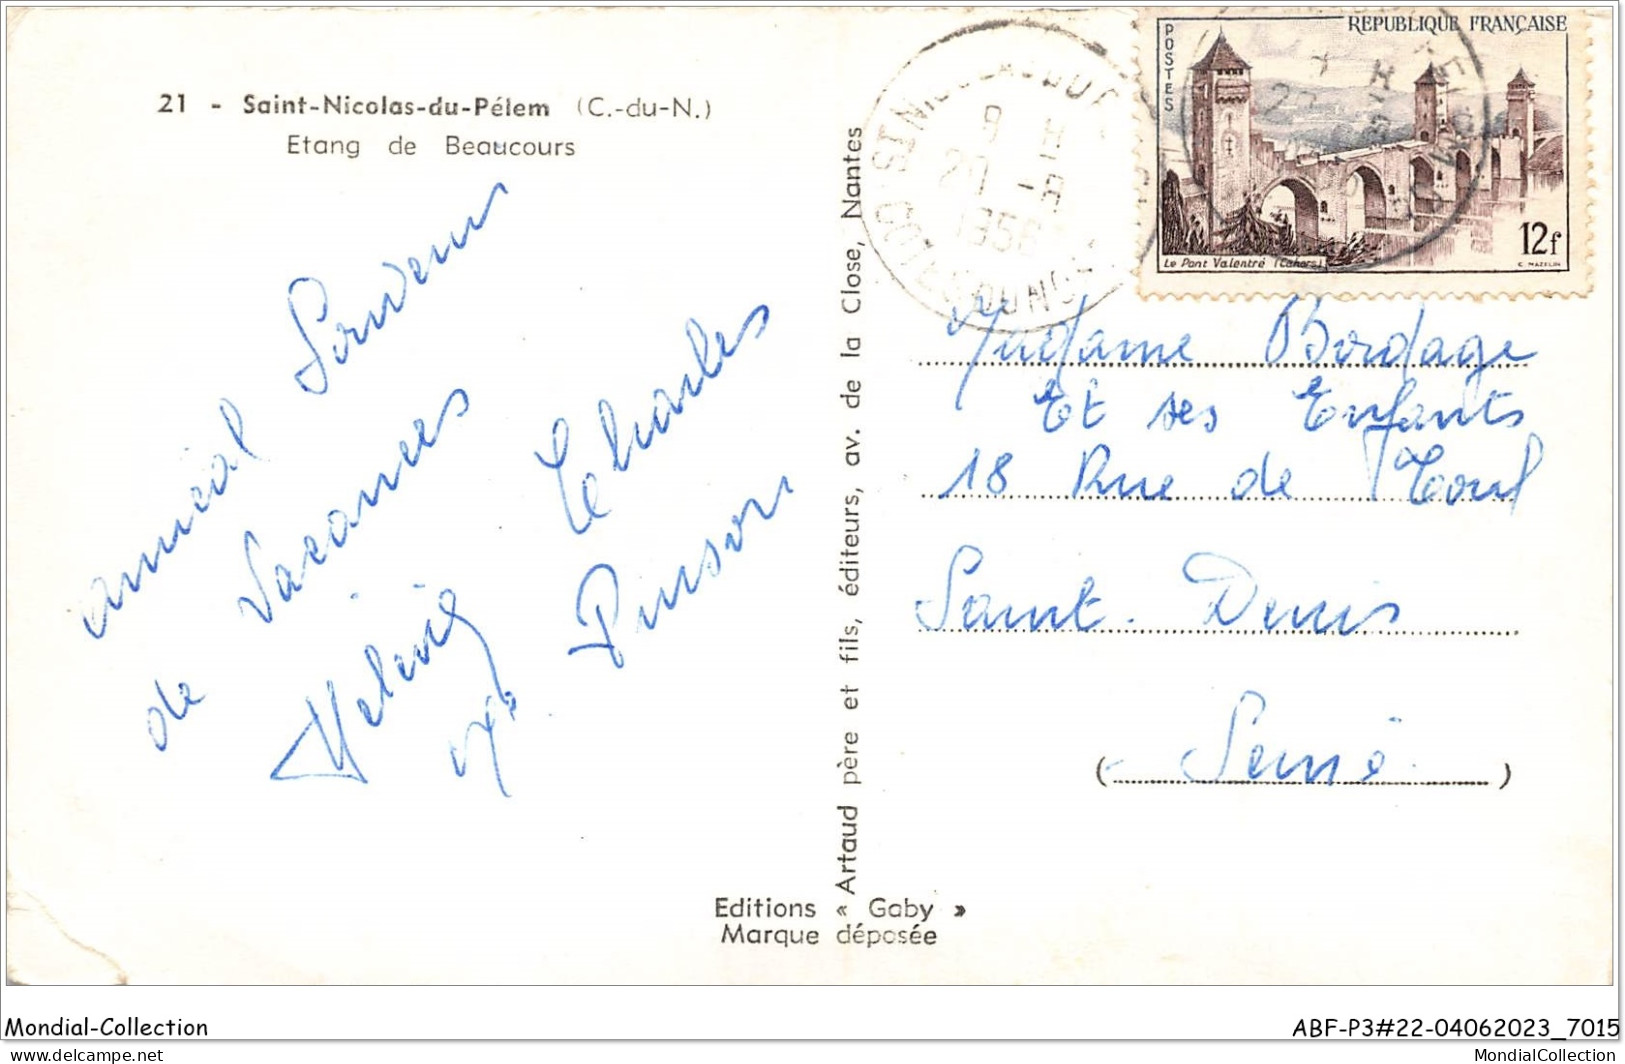 21 - Saint-Nicolas-du-Pélem (C.-du-N.)
Etang de Beaucours
amical Souvenir
de Vacances
Charles
Pinson
Artaud père et fils, éditeurs, av. de la Close, Nantes
Editions « Gaby »
Marque déposée
REPUBLIQUE FRANÇAISE
POSTES
12f
Le Pont Valentré (Cahors)
C. MAZELIN
9 H
20 -8
1956
COTES DU NORD
Madame Bordage
Et ses Enfants
18 Rue de Toul
Saint-Denis
(Seine)
Mondial-Collection
ABF-P3#22-04062023_7015
www.delcampe.net
MondialCollection